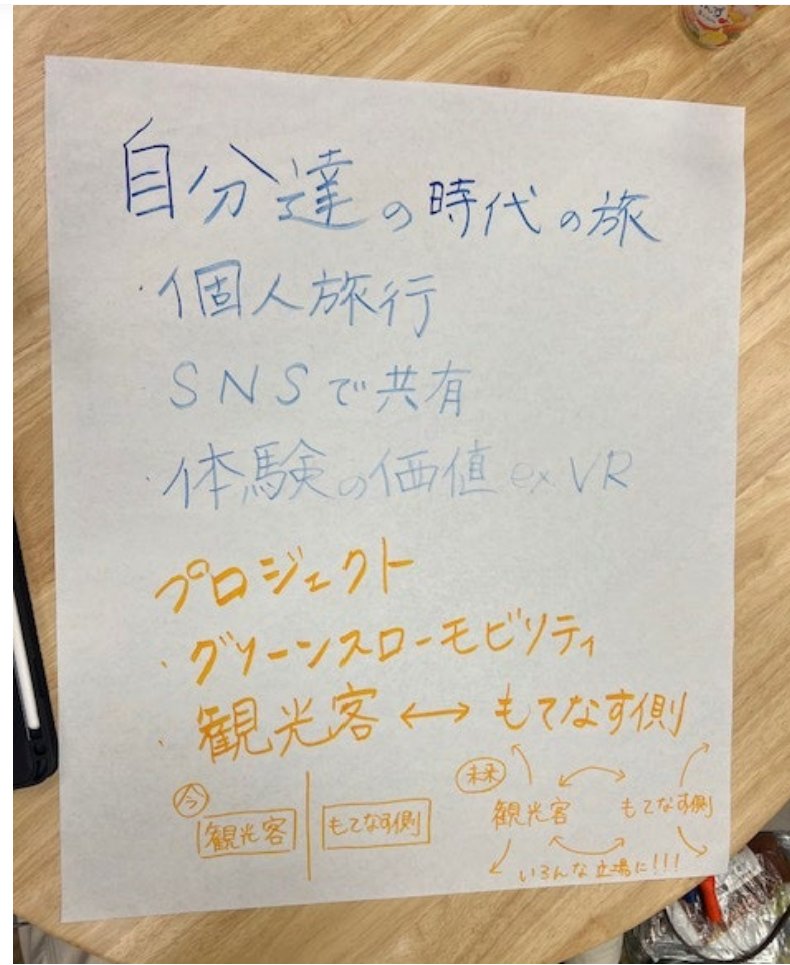 自分達の時代の旅
・個人旅行
SNSで共有
・体験の価値 ex VR
プロジェクト
・グリーンスローモビリティ
・観光客 ↔ もてなす側
今
観光客 | もてなす側
未来
観光客 もてなす側
いろんな立場に!!!